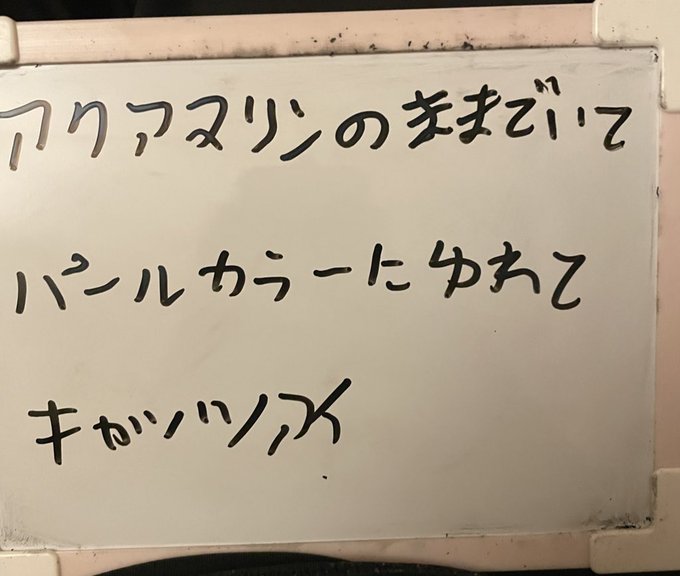 アクアマリンのままでいて
パールカラーにゆれて
キャッツアイ